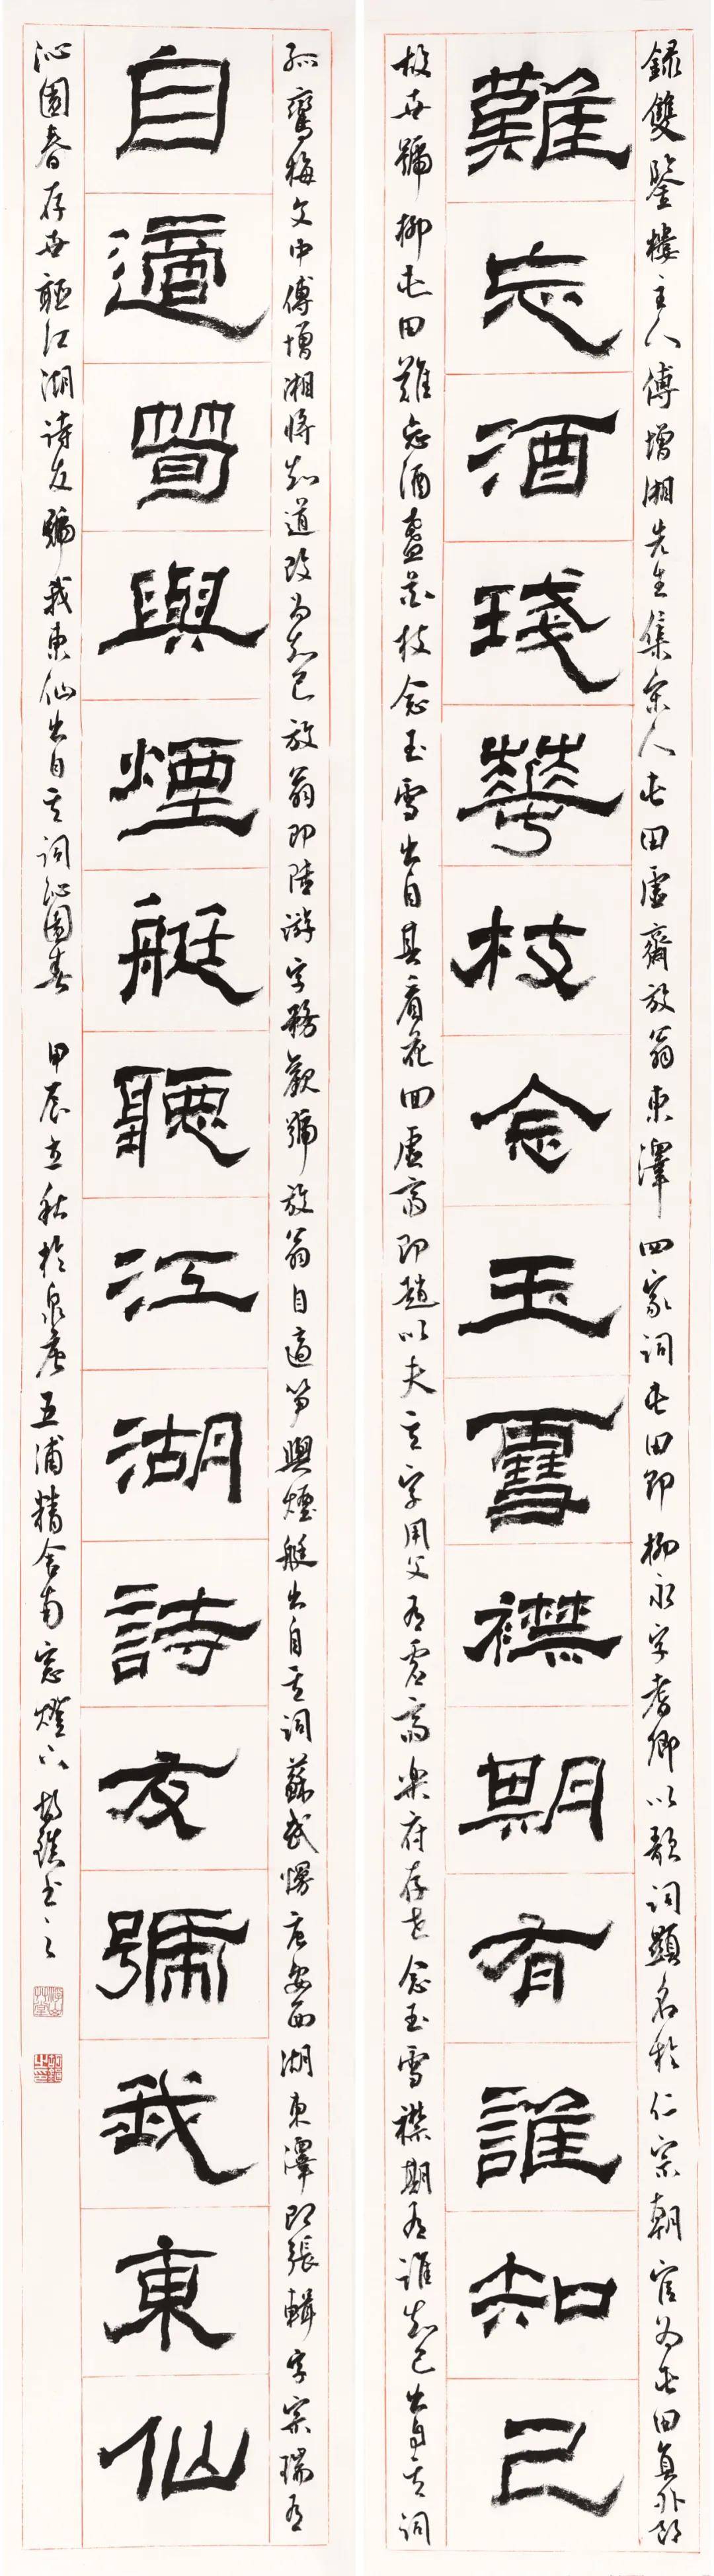 錄雙鑒樓主人傅增湘先生集宋人屯田虛齋放翁東澤四家詞屯田即柳永字耆卿以歌詞顯名於仁宗朝官為屯田員外郎
難忘酒琖華枝念玉雪襟期有誰知己
故世號柳屯田難忘酒盞花枝念玉雪出自其看花回虛齋即趙以夫其字用父有虛齋樂府存世念玉雪襟期有誰知己出自其詞
孤鸞梅文中傅增湘將知道改為知己放翁即陸游字務觀號放翁自適笋與煙艇出自其詞蘇武慢唐安西湖東澤即張輯字宗瑞有
自適筍與煙艇聽江湖詩友號我東仙
沁園春存世聽江湖詩友號我東仙出自其詞沁園春 甲辰立秋於泉唐五浦精舍南窗燈下書之